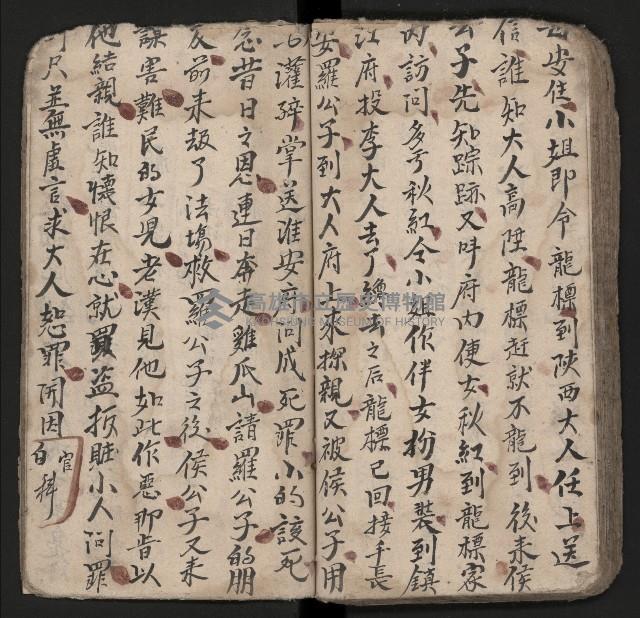 安住小姐即令龍標到陝西大人任上送
信誰知大人高陞龍標赶就不龍到後来侯
公子先知踪跡又呌府内使女秋紅到龍標家
内訪問多亏秋紅令小姐作伴女扮男裝到鎮
江府投李大人去了繡去之后龍標已回接手長
安羅公子到大人府上来探親又被侯公子用
酒灌碎掌送淮安府问成死罪小的該死
念昔日之恩連日奔走雞爪山請羅公子的朋
友前来刼了法塲救羅公子之後侯公子又来
謀害難民的女児老漢見他如此作悪那肯以
他結親誰知懐恨在心就買盗扳賍小人问罪
尺並無虚言求大人恕罪開因
官
白 科
高雄市立歷史博物館
KAOHSIUNG MUSEUM OF HISTORY